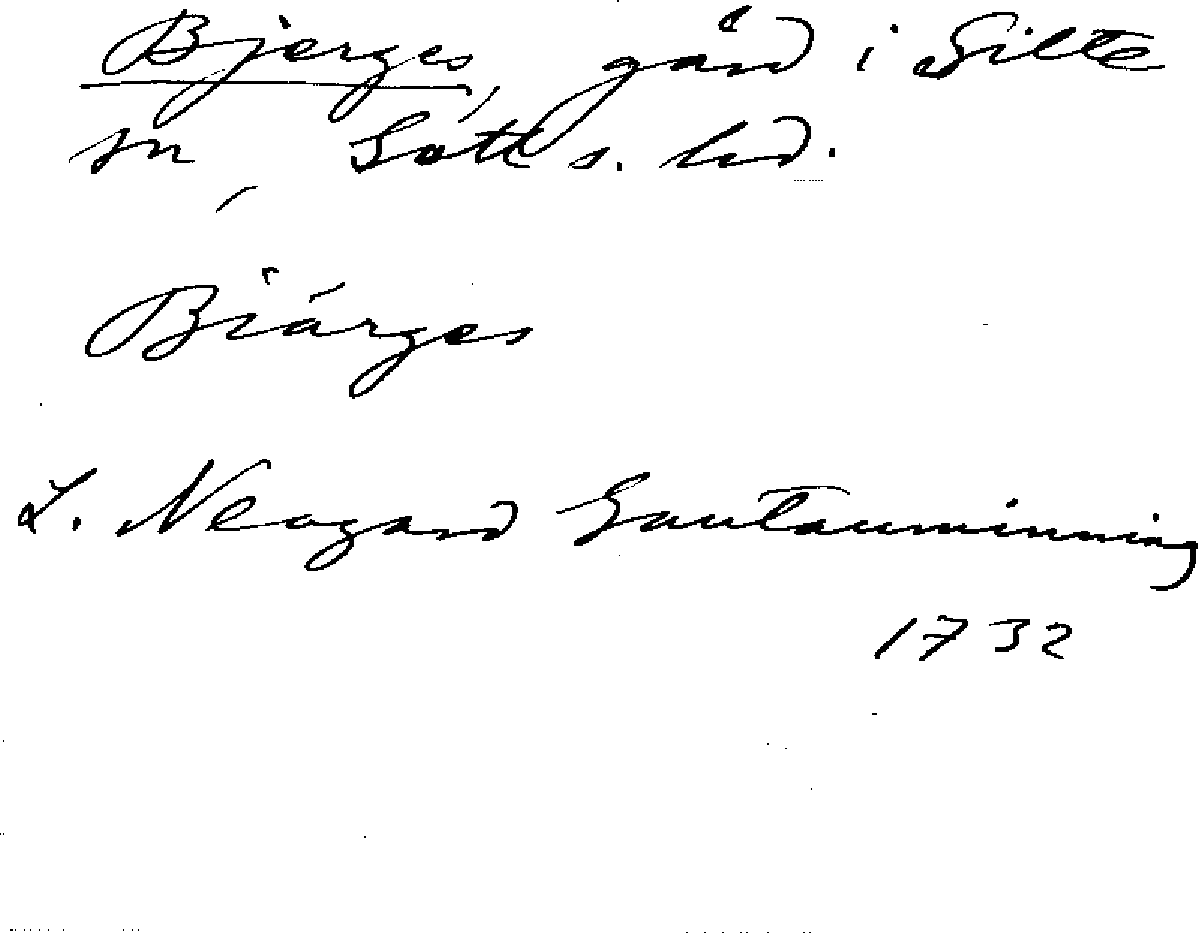 Bjerges, gård i Silte
sn, Gotl s. hd.
Biärges
L. Neogard Gautauminning
1732